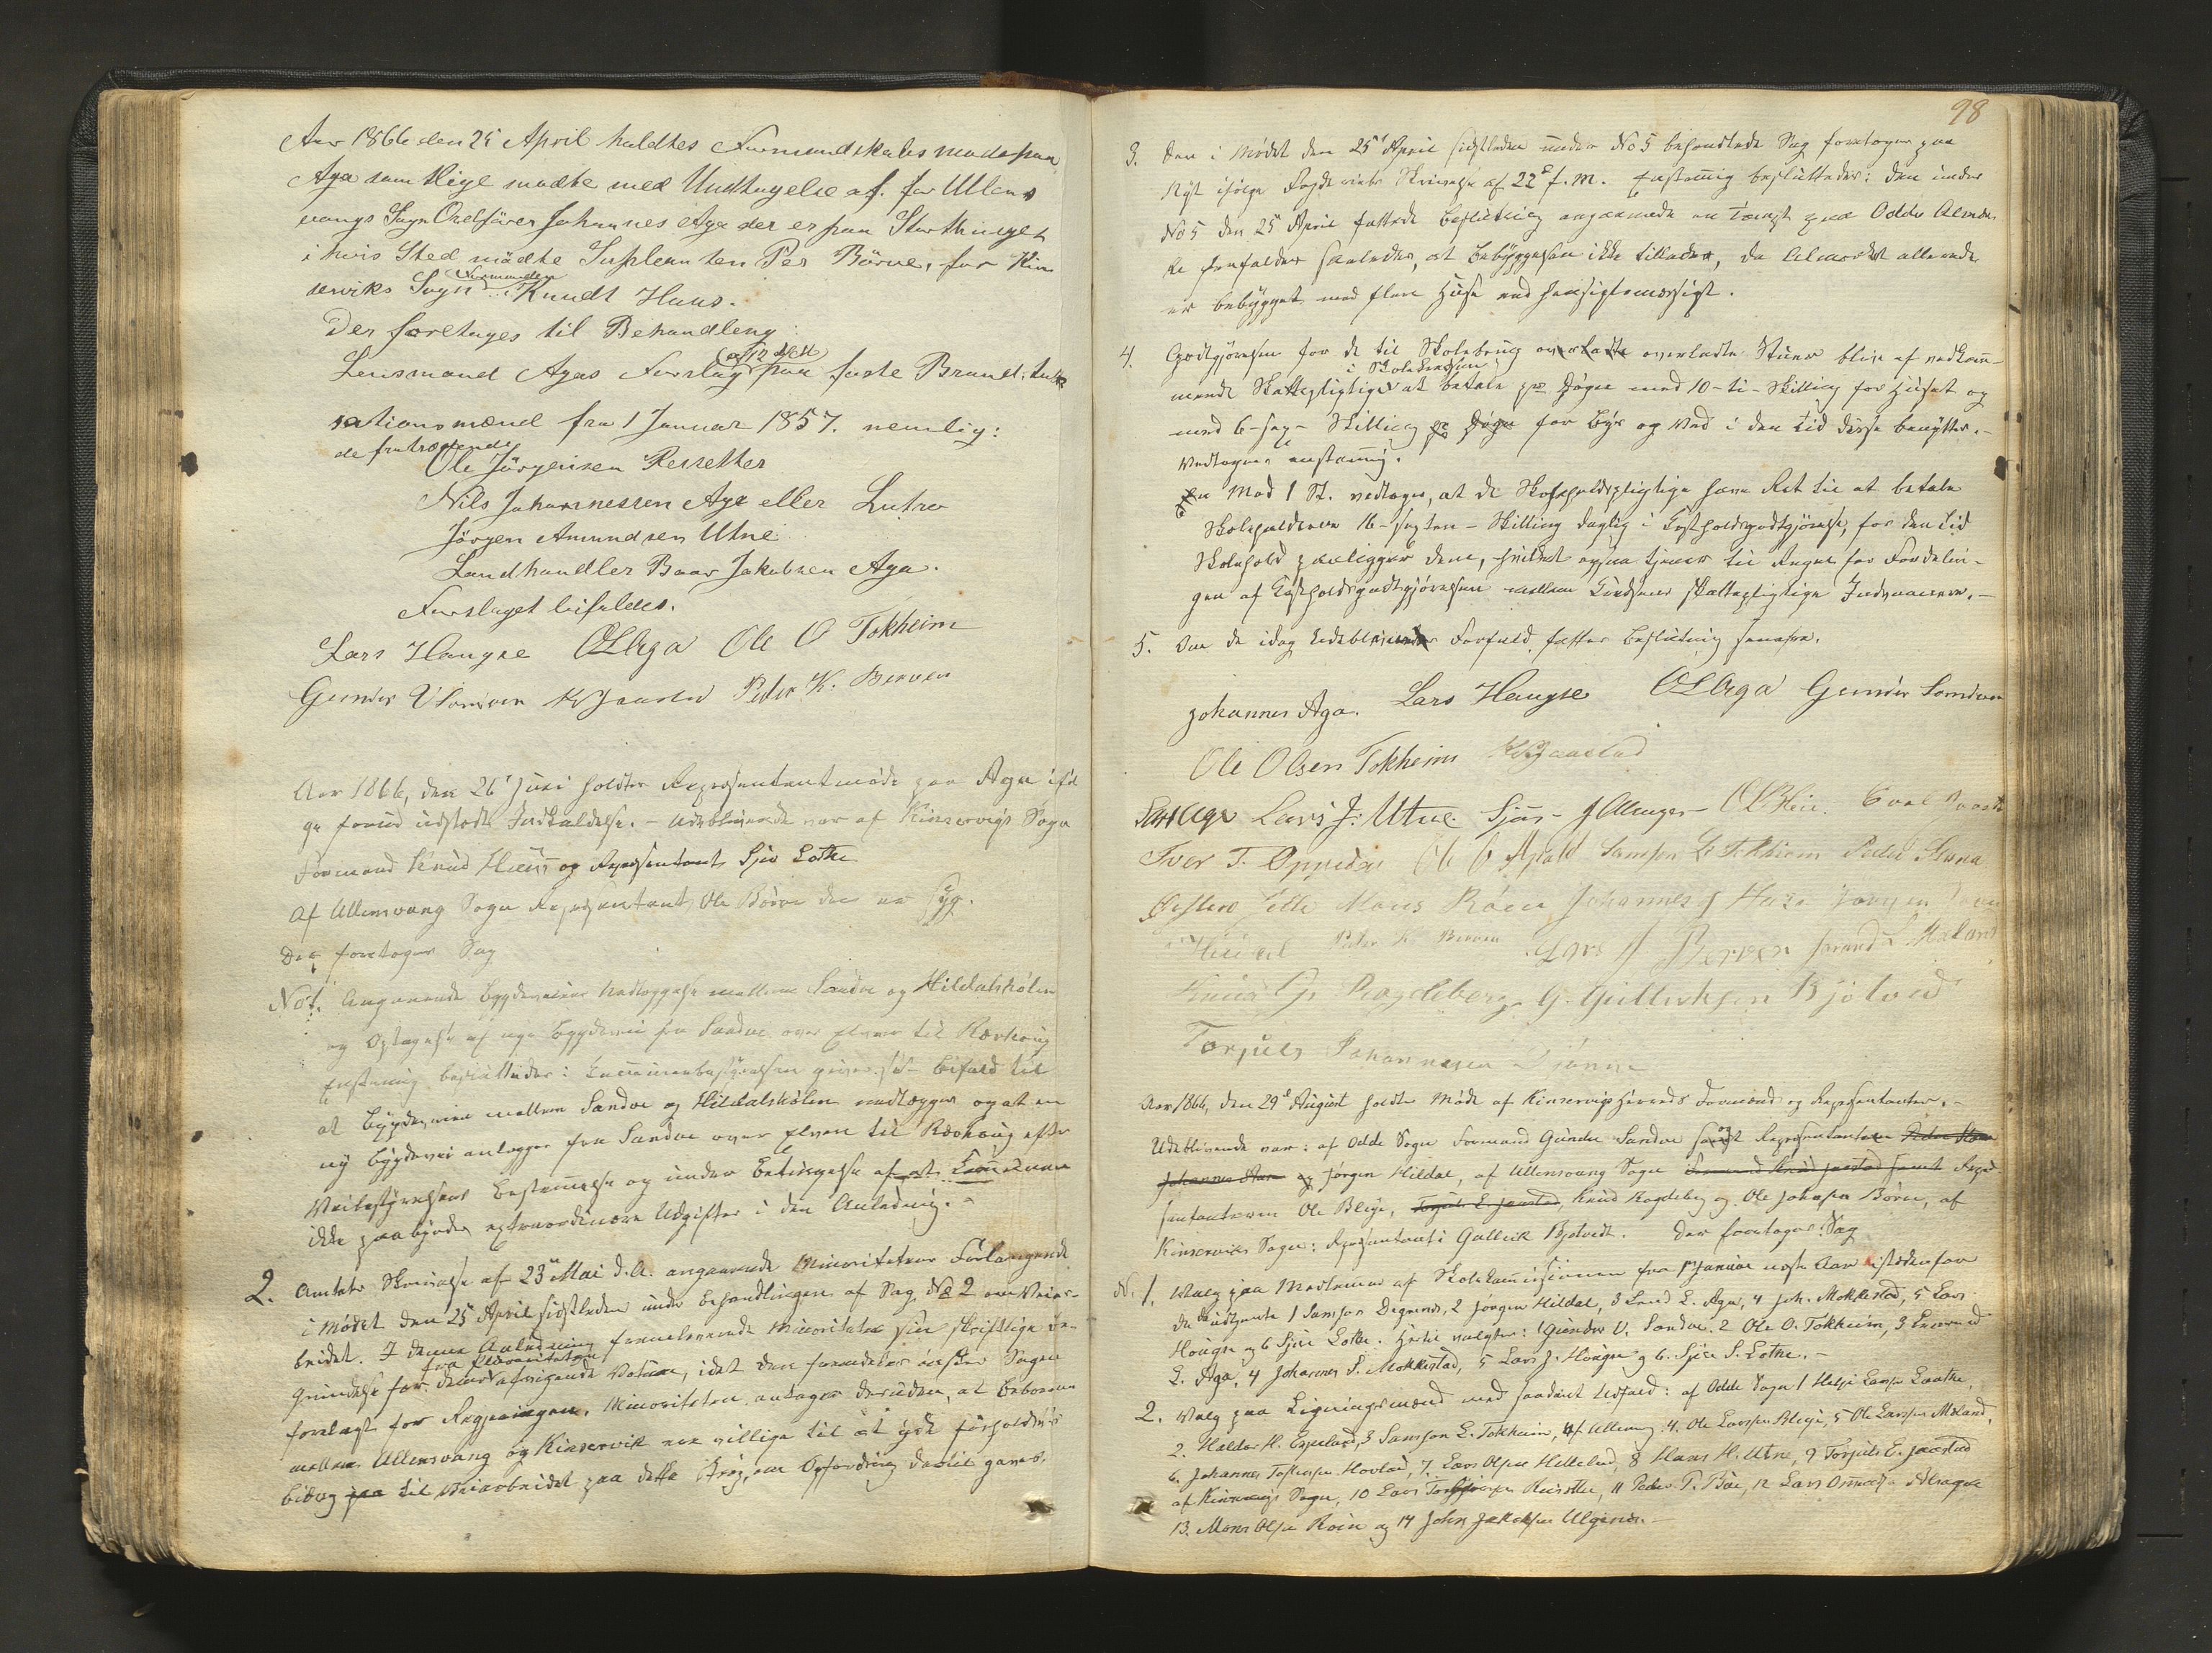 Aar 1866 den 25 April holdtes Formandskabs møde paa
Aga samtlige mødte med Undtagelse af. for Ullens
vangs Sogn Ordfører Johannes Aga der er paa Storthinget
i hvis Sted mødte Supleanten Per Börve, for Kin
serviks Sogn Formanden Knudt Huus.
Der foretages til Behandleng
Lensmand Agas Forslag (af 12 ds) paa faste Brand: tak
sationsmænd fra 1 Januar 1857. nemlig:
de fratrædende
Ole Jörgensen Reisetter
Nils Johannessen Aga eller Lutro
Jörgen Amundsen Utne
Landhandler Baar Jakobsen Aga.
Forslaget bifaldes.
Lars Haugse OLAga Ole O Tokheim
Gunder V Sandven K Jaastad Peder K. Berven
Aar 1866, den 26' Juni holdtes Repræsentantmøde paa Aga iføl
ge forud udstedt Indkaldelse. – Udeblivende var af Kinserviks Sogn
Formand Knud Huus og Repræsentant Sjur Lothe
Af Ullensvang Sogn Repræsentant, Ole Börve der var syg.
Der foretoges Sag
No 1. Angaaende Bygdeveiens Nedlæggelse mellem Sandve og Hildalshølen
og Optagelse af nye Bygdevei fra Sandve over Elven til Ravhoug
Enstemig besluttedes: Communebestyrelsen giver sit Bifald til
at Bygdeveien mellem Sandve og Hildalshølen nedlægges og at en
ny Bygdevei anlægges fra Sandve over Elven til Ravhoug efter
Veibestyrelsens Bestemmelse og under Betingelse af at Communen
ikke paabyrdes extraordinære Udgifter i den Anledning. –
2. Amtets Skrivelse af 23' Mai d. A. angaaende Minoritetens Forlangende
i Mødet den 25' April sidstleden under Behandlingen af Sag No 2 om Veiar-
beidet. I denne Anledning fremleverede Minoriteten sin skriftlige Be-
grundelse for dens fra Pluraliteten afvigende Votum, idet den fremdeles ønsker Sagen
forelagt for Regjeringen. Minoriteten antager desuden, at Beboerne
mellem Ullensvang og Kinservik ere villige til at yde forholdsvis
Bidrag til Veiarbeidet paa dette Strøg, om Opfordring dertil gaves.
98
3. Den i Mødet den 25' April sidstleden under No 5 behandlede Sag foretoges paa
Nyt ifølge Fogderiets Skrivelse af 22' f. M. Enstemig besluttedes: Den under
No 5 den 25' April fattede Beslutning angaaende en Tomt paa Odde Almen-
de henfalder saaledes, at Bebyggelsen ikke tillades, da Almedet allerede
er bebygget med flere Huse end hensigtsmæssigt.
4. Godtgjørelsen for de til Skolebrug overladte Stuer blive af vedkom-
mende Skattepligtige i Skolekredsen at betale pr Døgn med 10 – ti – Skilling for Huset og
med 6 – sex – Skilling pr Døgn for Lys og Ved i den Tid disse benyttes. –
Vedtoges enstemig.
Mod 1 St. vedtoges, at de Skoleholdspligtige have Ret til at betale
Skoleholderen 16 – sexten – Skilling daglig i Kostholdsgodtgjørelse, for den Tid
Skolehold paaligger dem, hvilket ogsaa tjener til Regel for Fordelin-
gen af Kostholdsgodtgjørelsen mellem Kredsens skattepligtige Indvaanere. –
5. Om de idag Udeblivendes Forfald, fattes Beslutning senere.
Johannes Aga. Lars Haugse OLAga Gunder Sandven
Ole Olsen Tokheim K Jaastad
Lars J: Utne. Sjur
Iver T. Oppedal Ole O Apold Samson L Tokheim Peder
Mons Röen Johannes J Jörgen
Hildal Peder K. Berven Lars J Berven
Knud Ragdeberg G. Gulleiksen Bjotved
Torjuls Johannesen Djönne
Aar 1866, den 29' August holdtes Møde af Kinserviks Herreds Formænd og Repræsentanter. –
Udeblivende var: af Odde Sogn Formand Gunder Sandve samt Repræsentant
Jörgen Hildal, af Ullensvang Sogn Repræ-
sentanterne Ole Bleje, Torjuls E. Jaastad, Knud Ragdeberg og Ole Johansen Börve, af
Kinserviks Sogn: Repræsentant Gulleik Bjotvedt. Der foretoges Sag
No. 1. Valg paa Medlemmer af Skolekommissionen fra 1' Januar næste Aar istedenfor
de Udtjente 1 Samson Digrenes, 2 Jörgen Hildal, 3 Lord L. Aga, 4 Joh. Mokkestad, 5 Lars
Hougse og 6 Sjur Lothe. Hertil valgtes: 1 Gunder V. Sandve. 2 Ole O. Tokheim, 3
L. Aga, 4 Johannes S. Mokkestad, 5 Lars J. Hougse og 6. Sjur S. Lothe. –
2. Valg paa Ligningsmænd med saadant Udfald: af Odde Sogn 1 Helje Larsen
2. Haldor H. Espeland, 3 Samson L. Tokheim, af Ullensvang 4. Ole Larsen Bleje, 5 Ole Larsen Meland,
6. Johannes Torkelsen Hovland, 7. Lars Olsen Helleland, 8 Hans H. Utne, 9 Torjuls E. Jaastad
af Kinserviks Sogn, 10 Lars Reisetter, 11 Peder P. Bue, 12 Lars
13. Mons Olsen Röen og 14 John Jakobsen Ulgenes. –